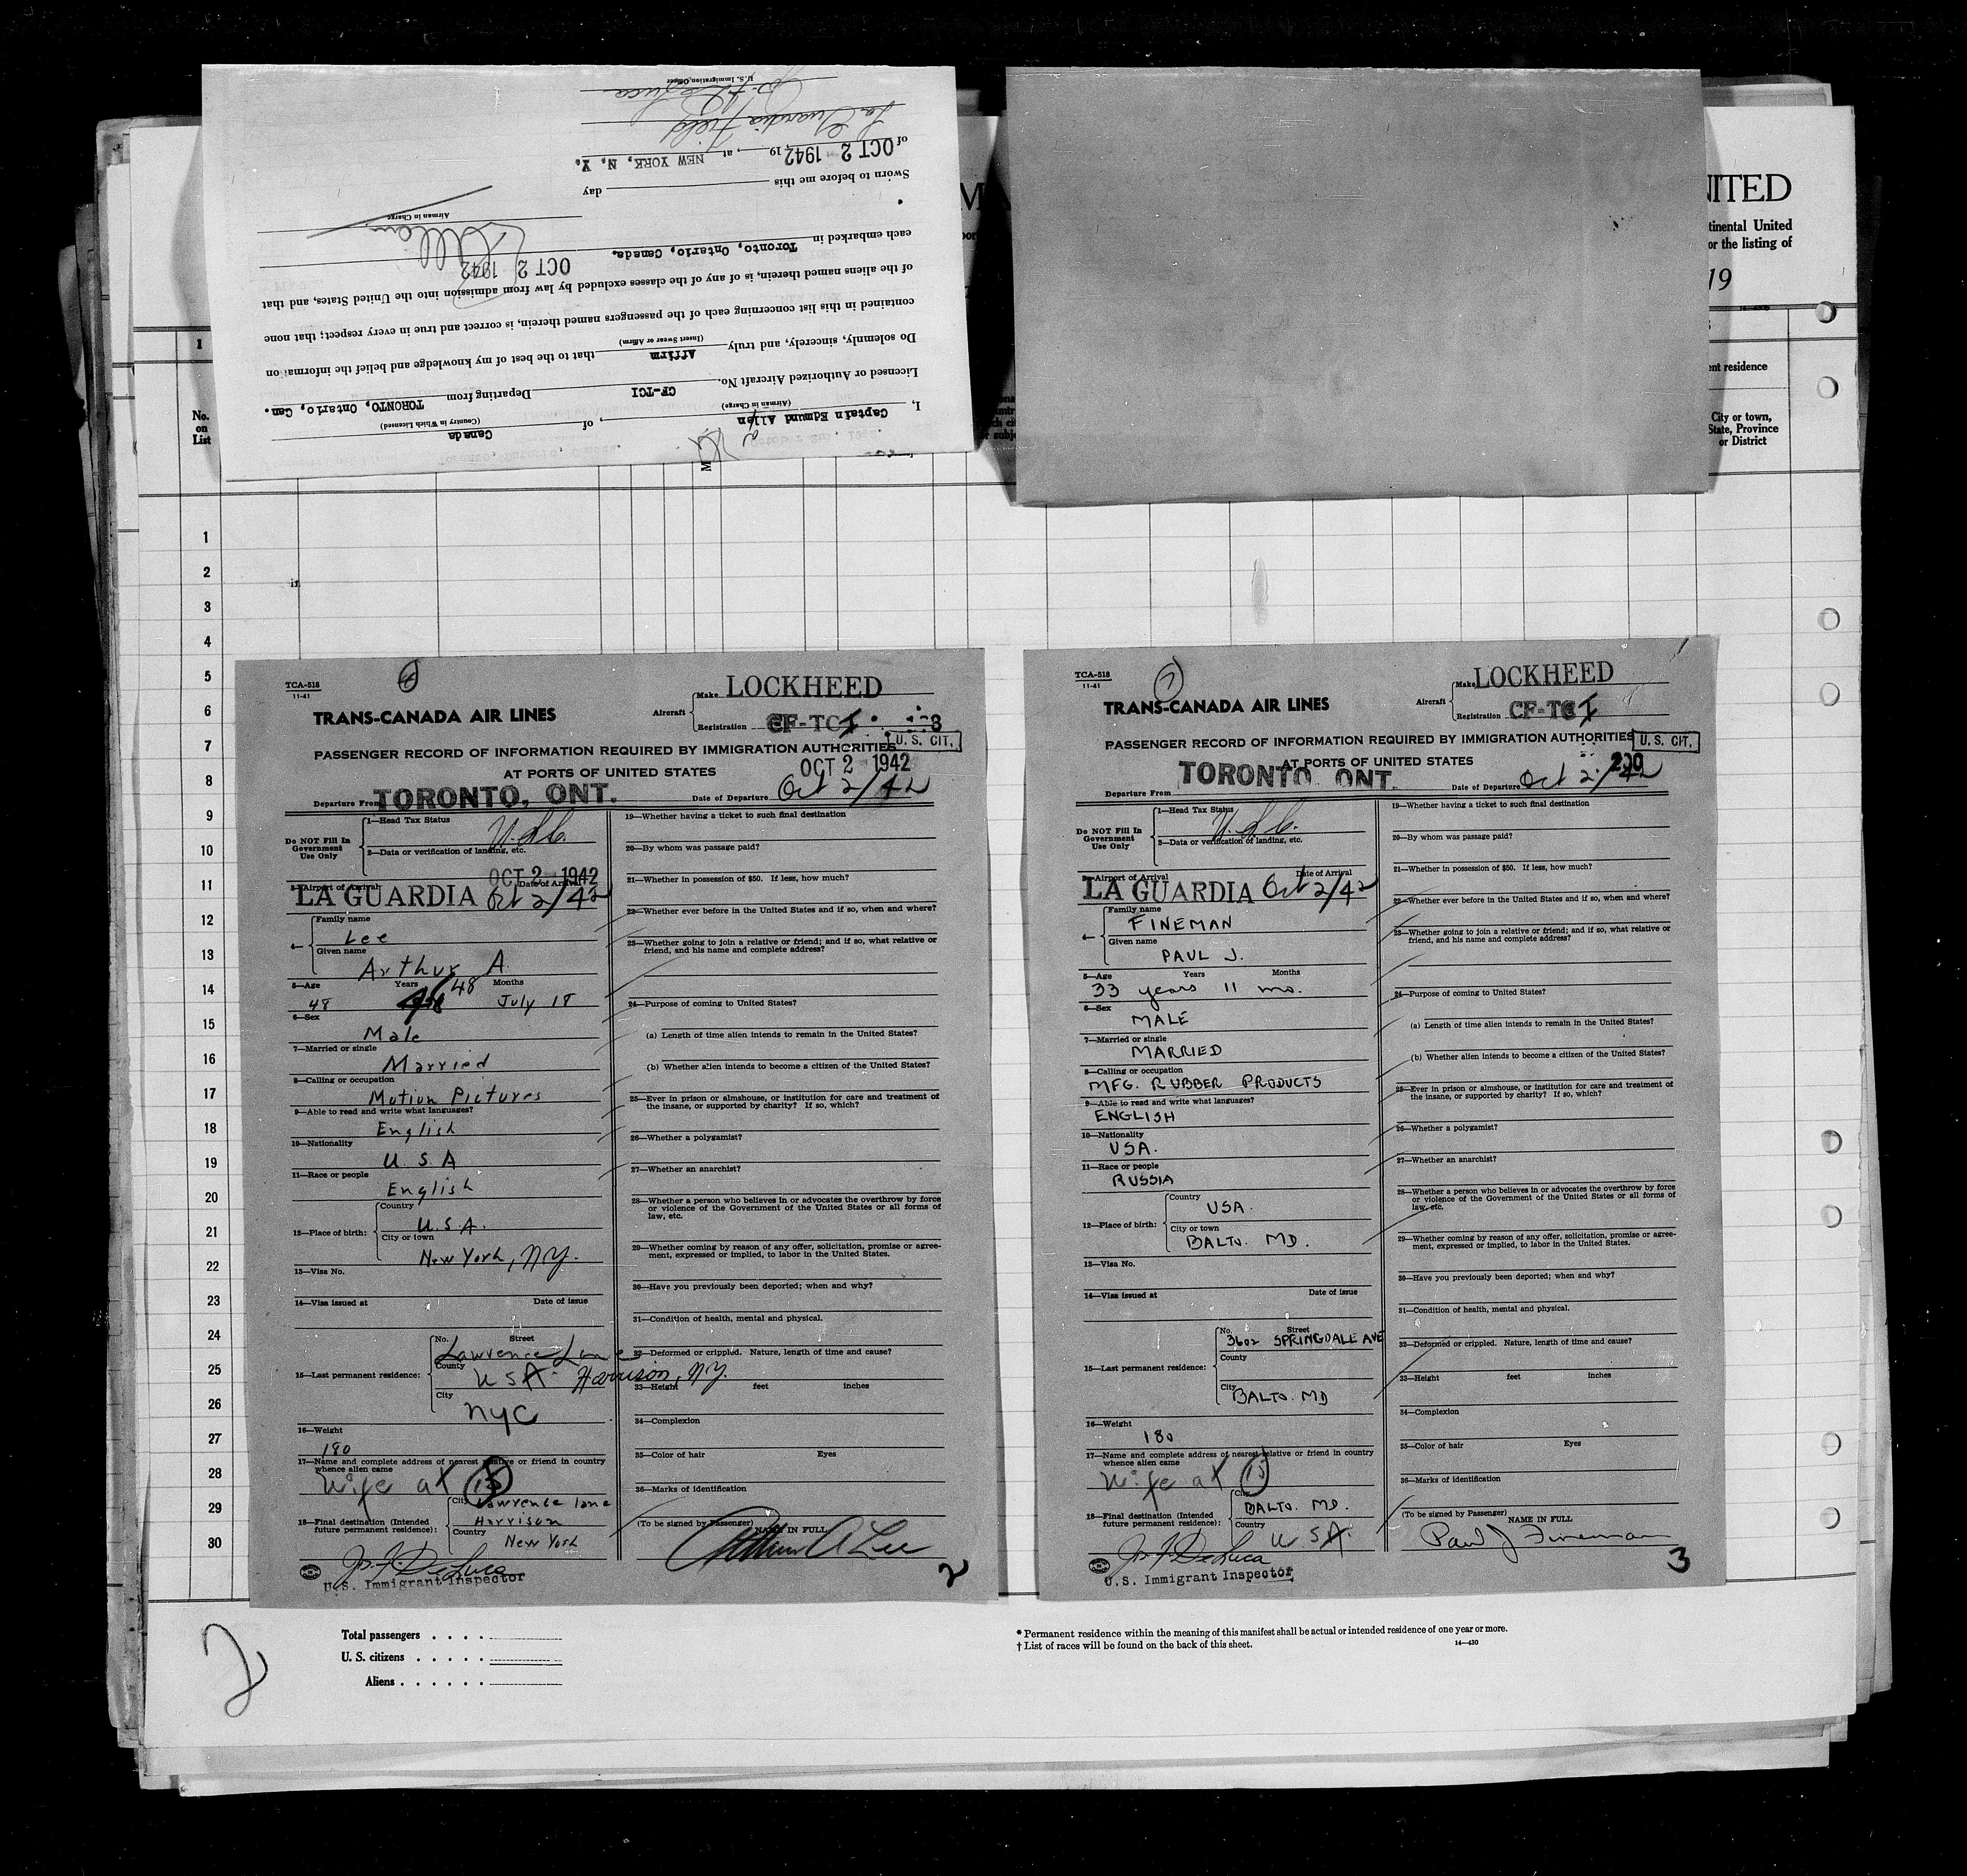 I, Captain Edmund Allen, of Canada
(Airman in Charge) (Country in Which Licensed)
Licensed or Authorized Aircraft No. CF-TCI Departing from TORONTO, Ontario, Can.
Do solemnly, sincerely, and truly Affirm that to the best of my knowledge and belief the information
(Insert Swear or Affirm)
contained in this list concerning each of the passengers named therein, is correct and true in every respect; that none
of the aliens named therein, is of any of the classes excluded by law from admission into the United States, and that
OCT 2 1942
each embarked in Toronto, Ontario, Canada.
Airman in Charge
Sworn to before me this day
of OCT 2 1942 19 , at NEW YORK, N. Y.
La Guardia Field
U. S. Immigration Officer
NITED
tinental United
or the listing of
19
ent residence
City or town,
State, Province
or District
1
No.
on
List
1
2
3
4
5
6
7
8
9
10
11
12
13
14
15
16
17
18
19
20
21
22
23
24
25
26
27
28
29
30
TCA-518
11-41
Make LOCKHEED
Aircraft
Registration CF-TCI
TRANS-CANADA AIR LINES
U. S. CIT.
PASSENGER RECORD OF INFORMATION REQUIRED BY IMMIGRATION AUTHORITIES
AT PORTS OF UNITED STATES
OCT 2 1942
Departure From TORONTO, ONT. Date of Departure Oct 2/42
Do NOT Fill In
Government
Use Only
1—Head Tax Status
2—Data or verification of landing, etc.
OCT 2 1942
3—Airport of Arrival Date of Arrival
LA GUARDIA Oct 2/42
4— Family name
Lee
Given name
Arthur A.
5—Age Years Months
48 48 July 18
6—Sex
Male
7—Married or single
Married
8—Calling or occupation
Motion Pictures
9—Able to read and write what languages?
English
10—Nationality
U. S. A
11—Race or people
English
12—Place of birth:
Country
U.S.A.
City or town
New York, N.Y.
13—Visa No.
14—Visa issued at Date of issue
15—Last permanent residence:
No. Street
Lawrence Lane
County
USA. Harrison, N.Y.
City
NYC
16—Weight
180
17—Name and complete address of nearest relative or friend in country
whence alien came
Wife at 15
18—Final destination (Intended
future permanent residence):
City Lawrence lane
Harrison
Country
New York
J. F. DeLuca
U.S. Immigrant Inspector
19—Whether having a ticket to such final destination
20—By whom was passage paid?
21—Whether in possession of $50. If less, how much?
22—Whether ever before in the United States and if so, when and where?
23—Whether going to join a relative or friend; and if so, what relative or
friend, and his name and complete address?
24—Purpose of coming to United States?
(a) Length of time alien intends to remain in the United States?
(b) Whether alien intends to become a citizen of the United States?
25—Ever in prison or almshouse, or institution for care and treatment of
the insane, or supported by charity? If so, which?
26—Whether a polygamist?
27—Whether an anarchist?
28—Whether a person who believes in or advocates the overthrow by force
or violence of the Government of the United States or all forms of
law, etc.
29—Whether coming by reason of any offer, solicitation, promise or agree-
ment, expressed or implied, to labor in the United States.
30—Have you previously been deported; when and why?
31—Condition of health, mental and physical.
32—Deformed or crippled. Nature, length of time and cause?
33—Height feet inches
34—Complexion
35—Color of hair Eyes
36—Marks of identification
(To be signed by Passenger) NAME IN FULL
Arthur A Lee
2
TCA-518
11-41
Make LOCKHEED
Aircraft
Registration CF-TCI
TRANS-CANADA AIR LINES
U. S. CIT.
PASSENGER RECORD OF INFORMATION REQUIRED BY IMMIGRATION AUTHORITIES
AT PORTS OF UNITED STATES
Departure From TORONTO, ONT. Date of Departure Oct 2/42
Do NOT Fill In
Government
Use Only
1—Head Tax Status
2—Data or verification of landing, etc.
3—Airport of Arrival Date of Arrival
LA GUARDIA Oct 2/42
4— Family name
FINEMAN
Given name
PAUL J.
5—Age Years Months
33 years 11 mo.
6—Sex
MALE
7—Married or single
MARRIED
8—Calling or occupation
MFG. RUBBER PRODUCTS
9—Able to read and write what languages?
ENGLISH
10—Nationality
USA.
11—Race or people
RUSSIA
12—Place of birth:
Country
USA.
City or town
BALTO. MD.
13—Visa No.
14—Visa issued at Date of issue
15—Last permanent residence:
No. Street
3602 SPRINGDALE AVE
County
City
BALTO. MD
16—Weight
180
17—Name and complete address of nearest relative or friend in country
whence alien came
Wife at 15
18—Final destination (Intended
future permanent residence):
City
BALTO. MD.
Country
USA.
J. F. DeLuca
U.S. Immigrant Inspector
19—Whether having a ticket to such final destination
20—By whom was passage paid?
21—Whether in possession of $50. If less, how much?
22—Whether ever before in the United States and if so, when and where?
23—Whether going to join a relative or friend; and if so, what relative or
friend, and his name and complete address?
24—Purpose of coming to United States?
(a) Length of time alien intends to remain in the United States?
(b) Whether alien intends to become a citizen of the United States?
25—Ever in prison or almshouse, or institution for care and treatment of
the insane, or supported by charity? If so, which?
26—Whether a polygamist?
27—Whether an anarchist?
28—Whether a person who believes in or advocates the overthrow by force
or violence of the Government of the United States or all forms of
law, etc.
29—Whether coming by reason of any offer, solicitation, promise or agree-
ment, expressed or implied, to labor in the United States.
30—Have you previously been deported; when and why?
31—Condition of health, mental and physical.
32—Deformed or crippled. Nature, length of time and cause?
33—Height feet inches
34—Complexion
35—Color of hair Eyes
36—Marks of identification
(To be signed by Passenger) NAME IN FULL
Paul J Fineman
3
2
Total passengers
U. S. citizens
Aliens
* Permanent residence within the meaning of this manifest shall be actual or intended residence of one year or more.
† List of races will be found on the back of this sheet.
14—430